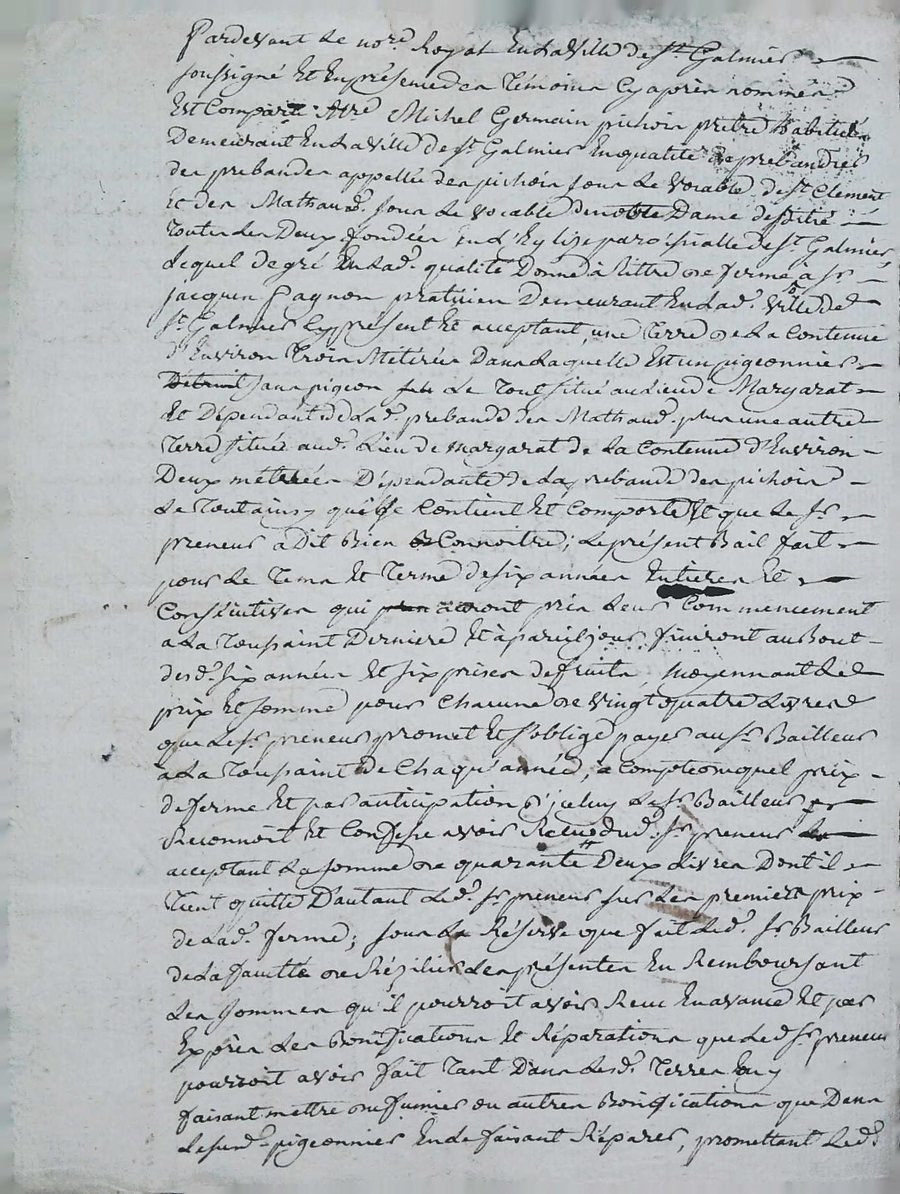 Pardevant Le no.re Royal En La Ville de s.t Galmier
soussigné Et En présence des Témoins Cy après nommés
Est Comparu M.re Michel Germain pichois prêtre habitué
Demeurant En La Ville de s.t Galmier En qualité de prebandier
des prebandes appellée des pichois sous Le Vocable de s.t Clement
Et des Mathaud. sous Le vocable de notre Dame de pitié
Toutes Les Deux fondées En L'Eglize paroissialle de s.t Galmier
Lequel de gré En Lad. qualité Donne à tittre de ferme à s.r
jacques Gagnon praticien Demeurant En Lad. Ville de
s.t Galmier Cy présent Et acceptant, une Terre de La Contenue
d'Environ Trois Metérées Dans Laquelle Est un pigeonnier
Détruit sans pigeon Le Tout situé au Lieu de Margarat
Et Dépendant de Lad. prebande des Mathaud. plus une autre
Terre située aud. Lieu de Margarat de La Contenue d'Environ
Deux métérées Dépendante de La prebande des pichois
Le Tout ainsy qu'il se Contient Et Comporte Et que Le s.r
preneur a Dit Bien Connoitre; Le présent Bail fait
pour Le Tems Et Terme de six années Entieres Et
Consécutives qui ont pris Leur Commencement
a La Toussaint Derniere Et à pareil jour finiront au Bout
desd. six années Et six prises de fruits, Moyennant Le
prix Et somme pour Chacune de Vingt quatre Livres
que Led. s.r preneur promet Et s'oblige payer au s.r Bailleur
à La Toussaint de Chaqu'année, à Compte duquel prix
de ferme Et par anticipation d'jceluy Led. s.r Bailleur
Reconnoit Et Confesse avoir Recu dud. s.r preneur
acceptant La somme de quarante Deux Livres Dont il
Tient quitte D'autant Led. s.r preneur sur Les premiers prix
de Lad. ferme; sous La Réserve que fait Led. s.r Bailleur
de La faculté de Résilier Les présentes En Remboursant
Les sommes qu'il pourroit avoir Recu En avance Et par
Exprès Les Bonifications Et Réparations que Led. s.r preneur
pourroit avoir fait Tant Dans Lesd. Terres En y
faisant mettre du fumier ou autres Bonifications que Dans
Le susd. pigeonnier En Le faisant Réparer, promettant Led.